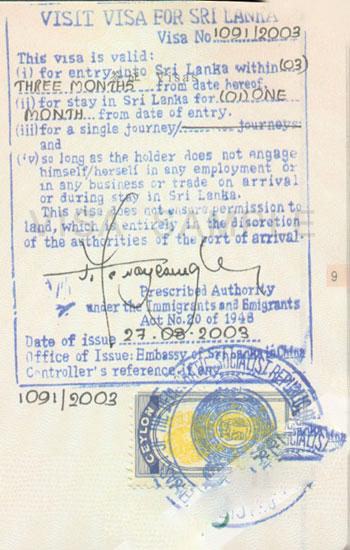 VISIT VISA FOR SRI LANKA
Visa No 1091/2003
This visa is valid:
(i) for entry into Sri Lanka within (03)
THREE MONTHS from date hereof
(ii) for stay in Sri Lanka for (01) ONE
MONTH from date of entry.
(iii) for a single journey/ journeys
and
(iv) so long as the holder does not engage
himself/herself in any employment or
in any business or trade on arrival
or during stay in Sri Lanka.
This visa does not ensure permission to
land, which is entirely in the discretion
of the authorities of the port of arrival.
VISA SAMPLE
9
Prescribed Authority
under the Immigrants and Emigrants
Act No.20 of 1948
Date of issue 27.08.2003
Office of Issue: Embassy of Sri Lanka in China
Controller's reference if any
1091/2003
CEYLON
SOCIALIST REPUBLIC OF